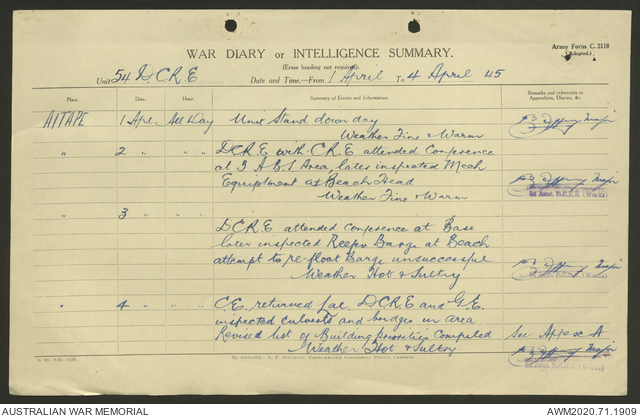 Army Form C. 2118
(Adapted.)
WAR DIARY or INTELLIGENCE SUMMARY.
(Erase heading not required).
Unit 54 D.C.R.E Date and Time—From 1 April To 4 April 45
Place. Date. Hour. Summary of Events and Information. Remarks and references to Appendices, Diaries, &c.
AITAPE 1 Apl. All Day Unit Stand down day
Weather Fine & Warm Major
" 2 " " D.C.R.E with C.R.E attended Conference
at 3 A.B.S Area, later inspected Mech
Equiptment at Beach Head Major
Weather Fine & Warm
" 3 " "
D.C.R.E attended conference at Base
later inspected Barge at Beach
attempt to re-float Barge unsuccessful
Weather Hot & Sultry Major
" 4 " " C.E. returned Lae. D.C.R.E and G.E.
inspected culverts and bridges in area
Revised list of Building priorities Compiled See Appex A
Weather Hot & Sultry Major
By Authority: L. F. Johnston, Commonwealth Government Printer, Canberra.
AUSTRALIAN WAR MEMORIAL AWM2020.71.1909